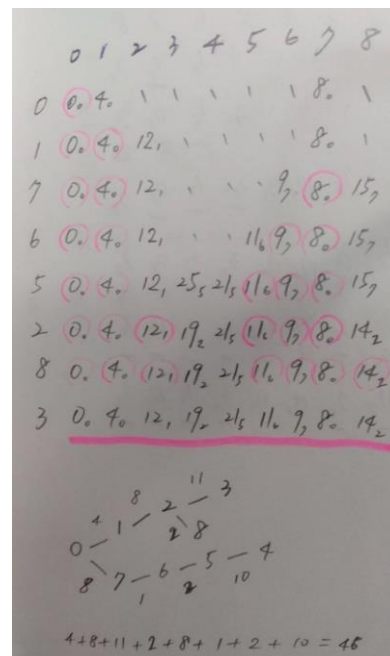 0 1 2 3 4 5 6 7 8
0 0₀ 4₀ \ \ \ \ \ 8₀ \
1 0₀ 4₀ 12₁ \ \ \ \ 8₀ \
7 0₀ 4₀ 12₁ \ \ \ 9₇ 8₀ 15₇
6 0₀ 4₀ 12₁ \ \ 11₆ 9₇ 8₀ 15₇
5 0₀ 4₀ 12₁ 25₅ 21₅ 11₆ 9₇ 8₀ 15₇
2 0₀ 4₀ 12₁ 19₂ 21₅ 11₆ 9₇ 8₀ 14₂
8 0₀ 4₀ 12₁ 19₂ 21₅ 11₆ 9₇ 8₀ 14₂
3 0₀ 4₀ 12₁ 19₂ 21₅ 11₆ 9₇ 8₀ 14₂
11
8 2 3
4 1 2 8
0 5 4
7 6
8 1 2 10
4+8+11+2+8+1+2+10=46